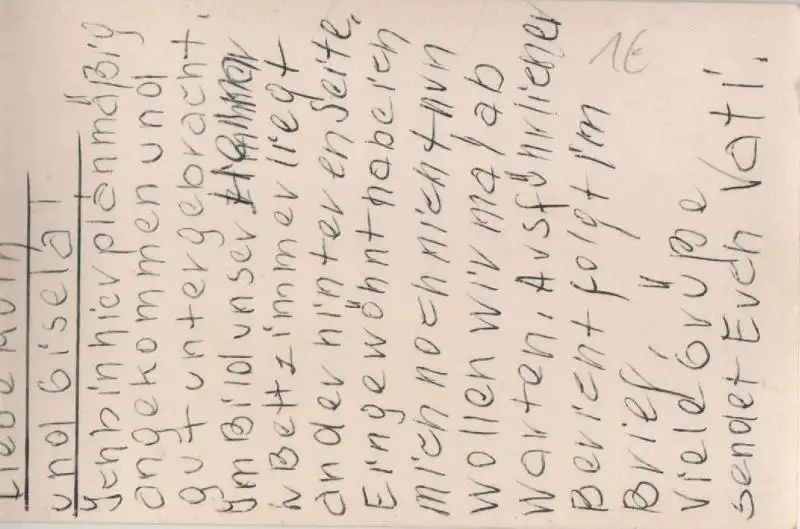 Liebe
und Gisela!
Ych bin hier planmäßig
angekommen und
gut untergebracht.
Ym Bild unser
Bettzimmer liegt
an der hinteren Seite.
Eingewöhnt habe ich
mich noch nicht nun
wollen wir mal ab
warten. Ausführlicher
Bericht folgt im
Brief.
Viele Grüße
sendet Euch Vati.
1€